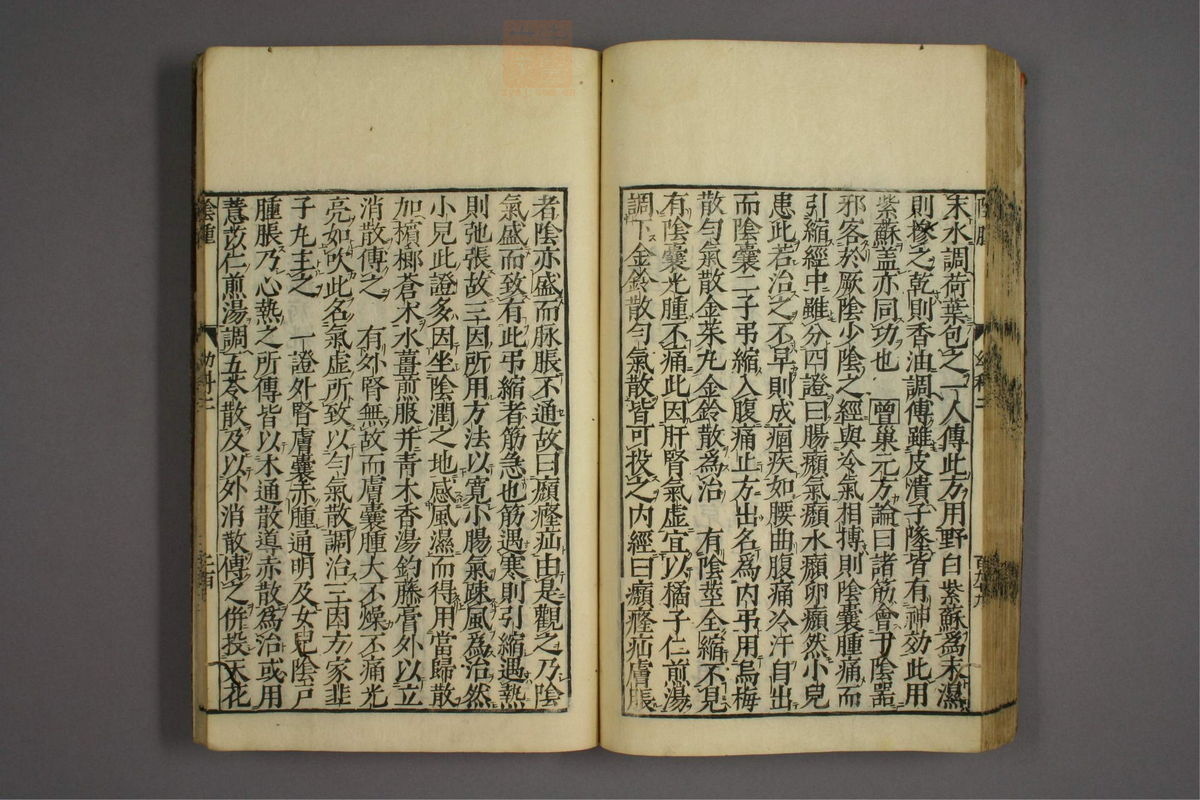 末水調荷葉包之一人傳此方用野白紫蘇爲末濕
則摻之乾則香油調傳雖皮潰子墜皆有神効此用
紫蘇盖亦同功也 曽巢元方論曰諸筋會于陰器
邪客於厥陰少陰之經與冷氣相搏則陰囊腫痛而
引縮經中雖分四證曰腸㿗氣㿗水㿗卵㿗然小兒
患此若治之不早則成痼疾如腰曲腹痛冷汗自出
而陰囊二子吊縮入腹痛止方出名爲内吊用烏梅
散匀氣散金茱丸金鈴散爲治 有陰莖全縮不見
有陰囊光腫不痛此因肝腎氣虚宜以橘子仁煎湯
調下金鈴散匀氣散皆可投之内經曰㿗癃疝膚脹
者陰亦盛而脉脹不通故曰㿗癃疝由是觀之乃陰
氣盛而致有此吊縮者筋急也筋遇寒則引縮遇熱
則弛張故三因所用方法以寛小腸氣疎風爲治然
小兒此證多因坐陰潤之地感風濕而得用當歸散
加檳榔蒼木水薑煎服并青木香湯鈎藤膏外以立
消散傅之 有外腎無故而膚囊腫大不燥不痛光
亮如吹此名氣虚所致以匀氣散調治三因方家韭
子丸主之 一證外腎膚囊赤腫通明及女兒陰戸
腫脹乃心熱之所傳皆以木通散導赤散爲治或用
薏苡仁煎湯調五苓散及以外消散傅之併投天花
陰腫 幼科二